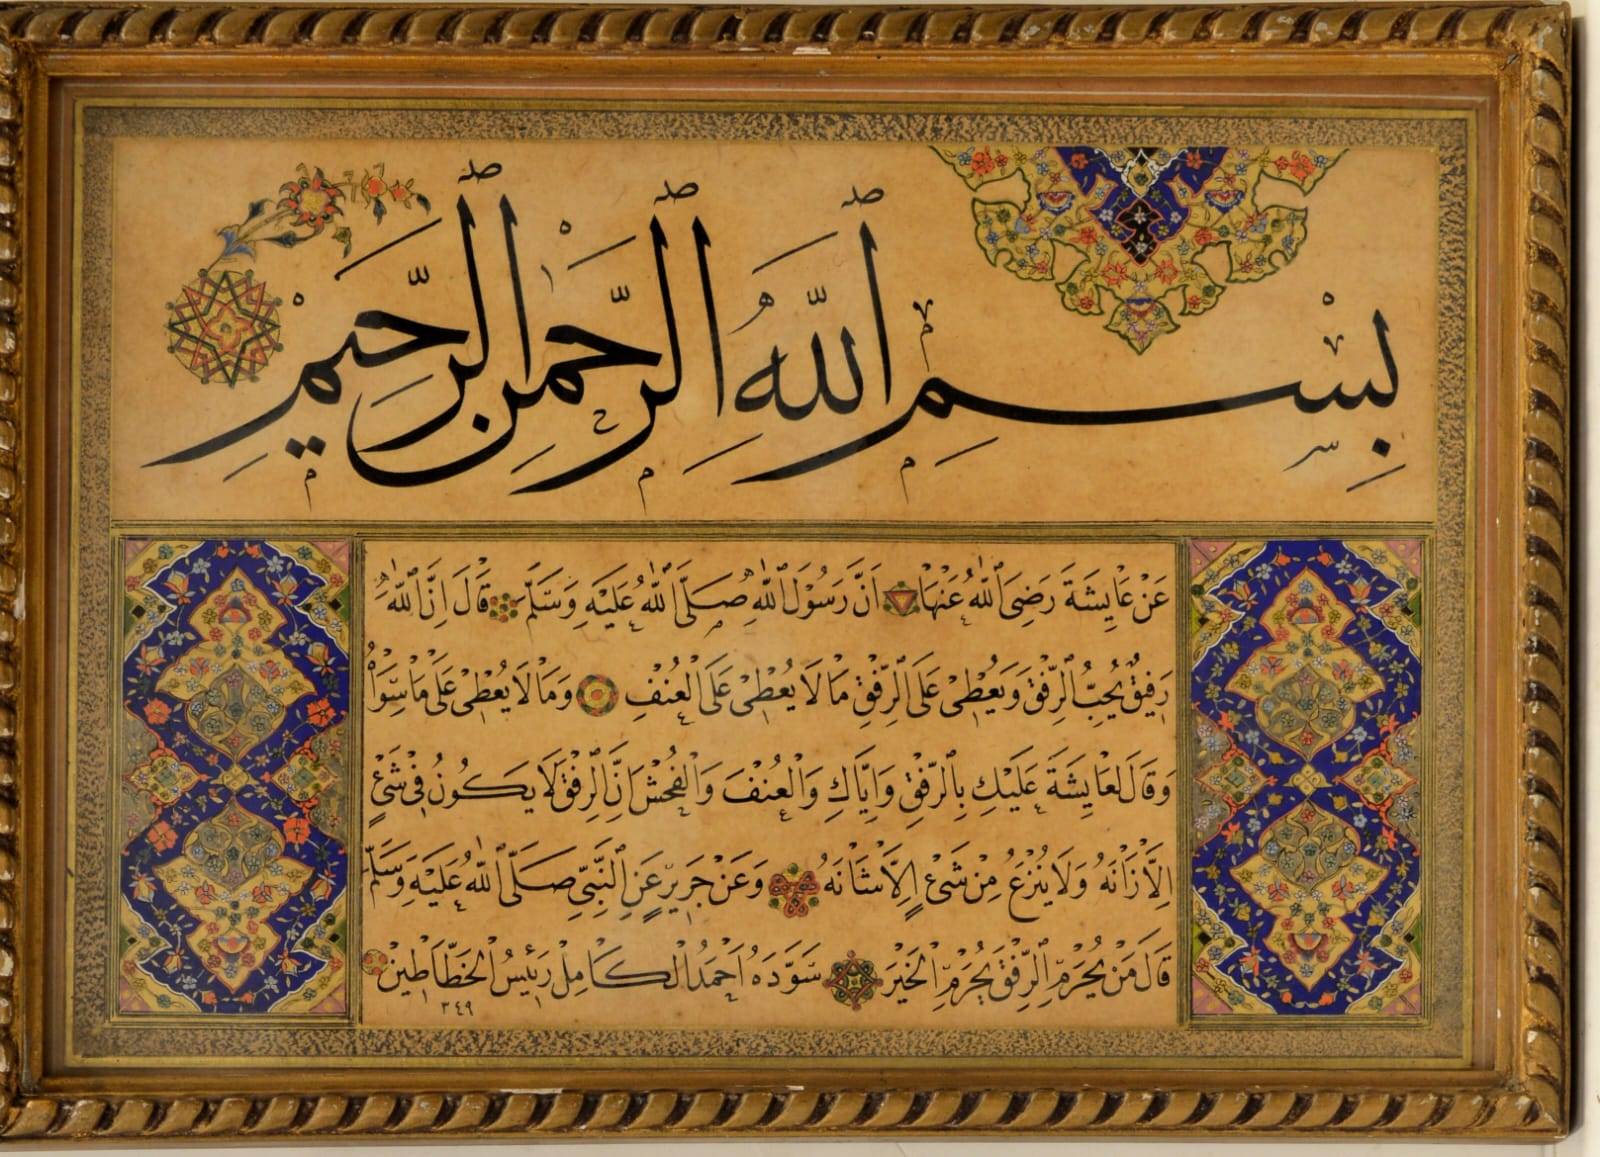 بِسْمِ اللهِ الرَّحْمٰنِ الرَّحِيمِ
عَنْ عَايِشَةَ رَضِيَ اللهُ عَنْهَا اَنَّ رَسُولَ اللهِ صَلَّى اللهُ عَلَيْهِ وَسَلَّمَ قَالَ اِنَّ اللهَ
رَفِيقٌ يُحِبُّ الرِّفْقَ وَيُعْطِي عَلَى الرِّفْقِ مَا لَا يُعْطِي عَلَى الْعُنْفِ وَمَا لَا يُعْطِي عَلَى مَا سِوَاهُ
وَقَالَ لِعَايِشَةَ عَلَيْكِ بِالرِّفْقِ وَاِيَّاكِ وَالْعُنْفَ وَالْفُحْشَ اِنَّ الرِّفْقَ لَا يَكُونُ فِي شَيْءٍ
اِلَّا زَانَهُ وَلَا يُنْزَعُ مِنْ شَيْءٍ اِلَّا شَانَهُ وَعَنْ جَرِيرٍ عَنِ النَّبِيِّ صَلَّى اللهُ عَلَيْهِ وَسَلَّمَ
قَالَ مَنْ يُحْرَمِ الرِّفْقَ يُحْرَمِ الْخَيْرَ سَوَّدَهُ اَحْمَدُ الْكَامِلْ رَئِيسُ الْخَطَّاطِينْ
١٣٤٩